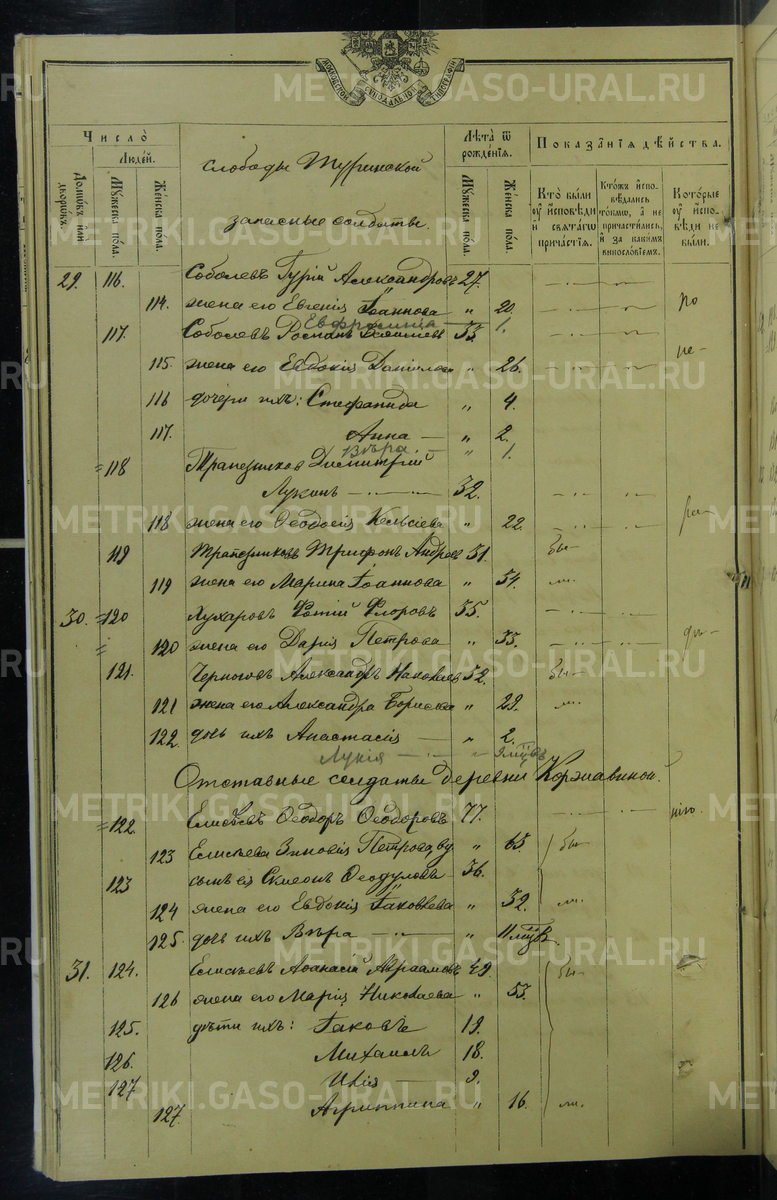 МОСКОВСКОЙ СѴНОДАЛЬНОЙ ТИПОГРАФІИ
Число̀
Людей.
Домѡвъ или дворѡвъ.
Мужеска пола.
Женска пола.
слободы Туринской
запасные солдаты.
Лѣта ѿ рожденія.
Мужеска пола.
Женска пола.
Показанія дѣйства.
Кто были оу исповѣди и святагѡ причастія.
Ктожъ исповѣдались токмѡ, а не причастились, и за какимъ винословіемъ.
Которые оу исповѣди не были.
29. 116. Соболевъ Гурій Александровъ 27.
114. жена его Евгенія Іоаннова " 20.
Евфросинія — 1.
117. Соболевъ 35.
115. жена его Евдокія Данилова " 26.
116 дочери ихъ: Стефанида " 4.
117. Анна — " 2.
Вѣра — " 1.
118 Трапезников Димитрій
Лукинъ 32.
118 жена его Ѳеодосія Кельсіева " 22.
119 Трапезниковъ Трифонъ Андреевъ 51.
119 жена его Марина Іоаннова " 54.
30. 120 Кухаровъ Фотій Флоровъ 55.
120 жена его Дарія Петрова " 55.
121. Александръ 52.
121 жена его Александра Борисова " 29.
122. дочь ихъ Анастасія — " 2.
Лукія
Отставные солдаты деревни Коржавиной.
122. Елисѣевъ Ѳеодоръ Ѳеодоровъ 77.
123 Елисѣева Зиновія Петрова, вд. " 65
123 сынъ ея Симеонъ Ѳеодуловъ 36.
124 жена его Евдокія Іаковлева " 32.
125. дочь ихъ Вѣра " 11 мѣц.
31. 124. Елисѣевъ Аѳанасій Авраамовъ 49.
126 жена его Марія Николаева " 53.
125. дѣти ихъ: Іаковъ 19.
126. Михаилъ 18.
127 Илія — 9.
127. Агриппина " 16.
METRIKI.GASO-URAL.RU